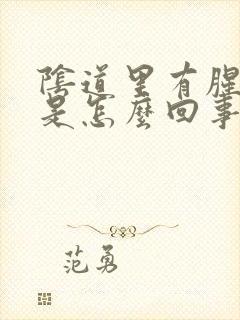 陰道里有腥
是怎麼回事
范勇